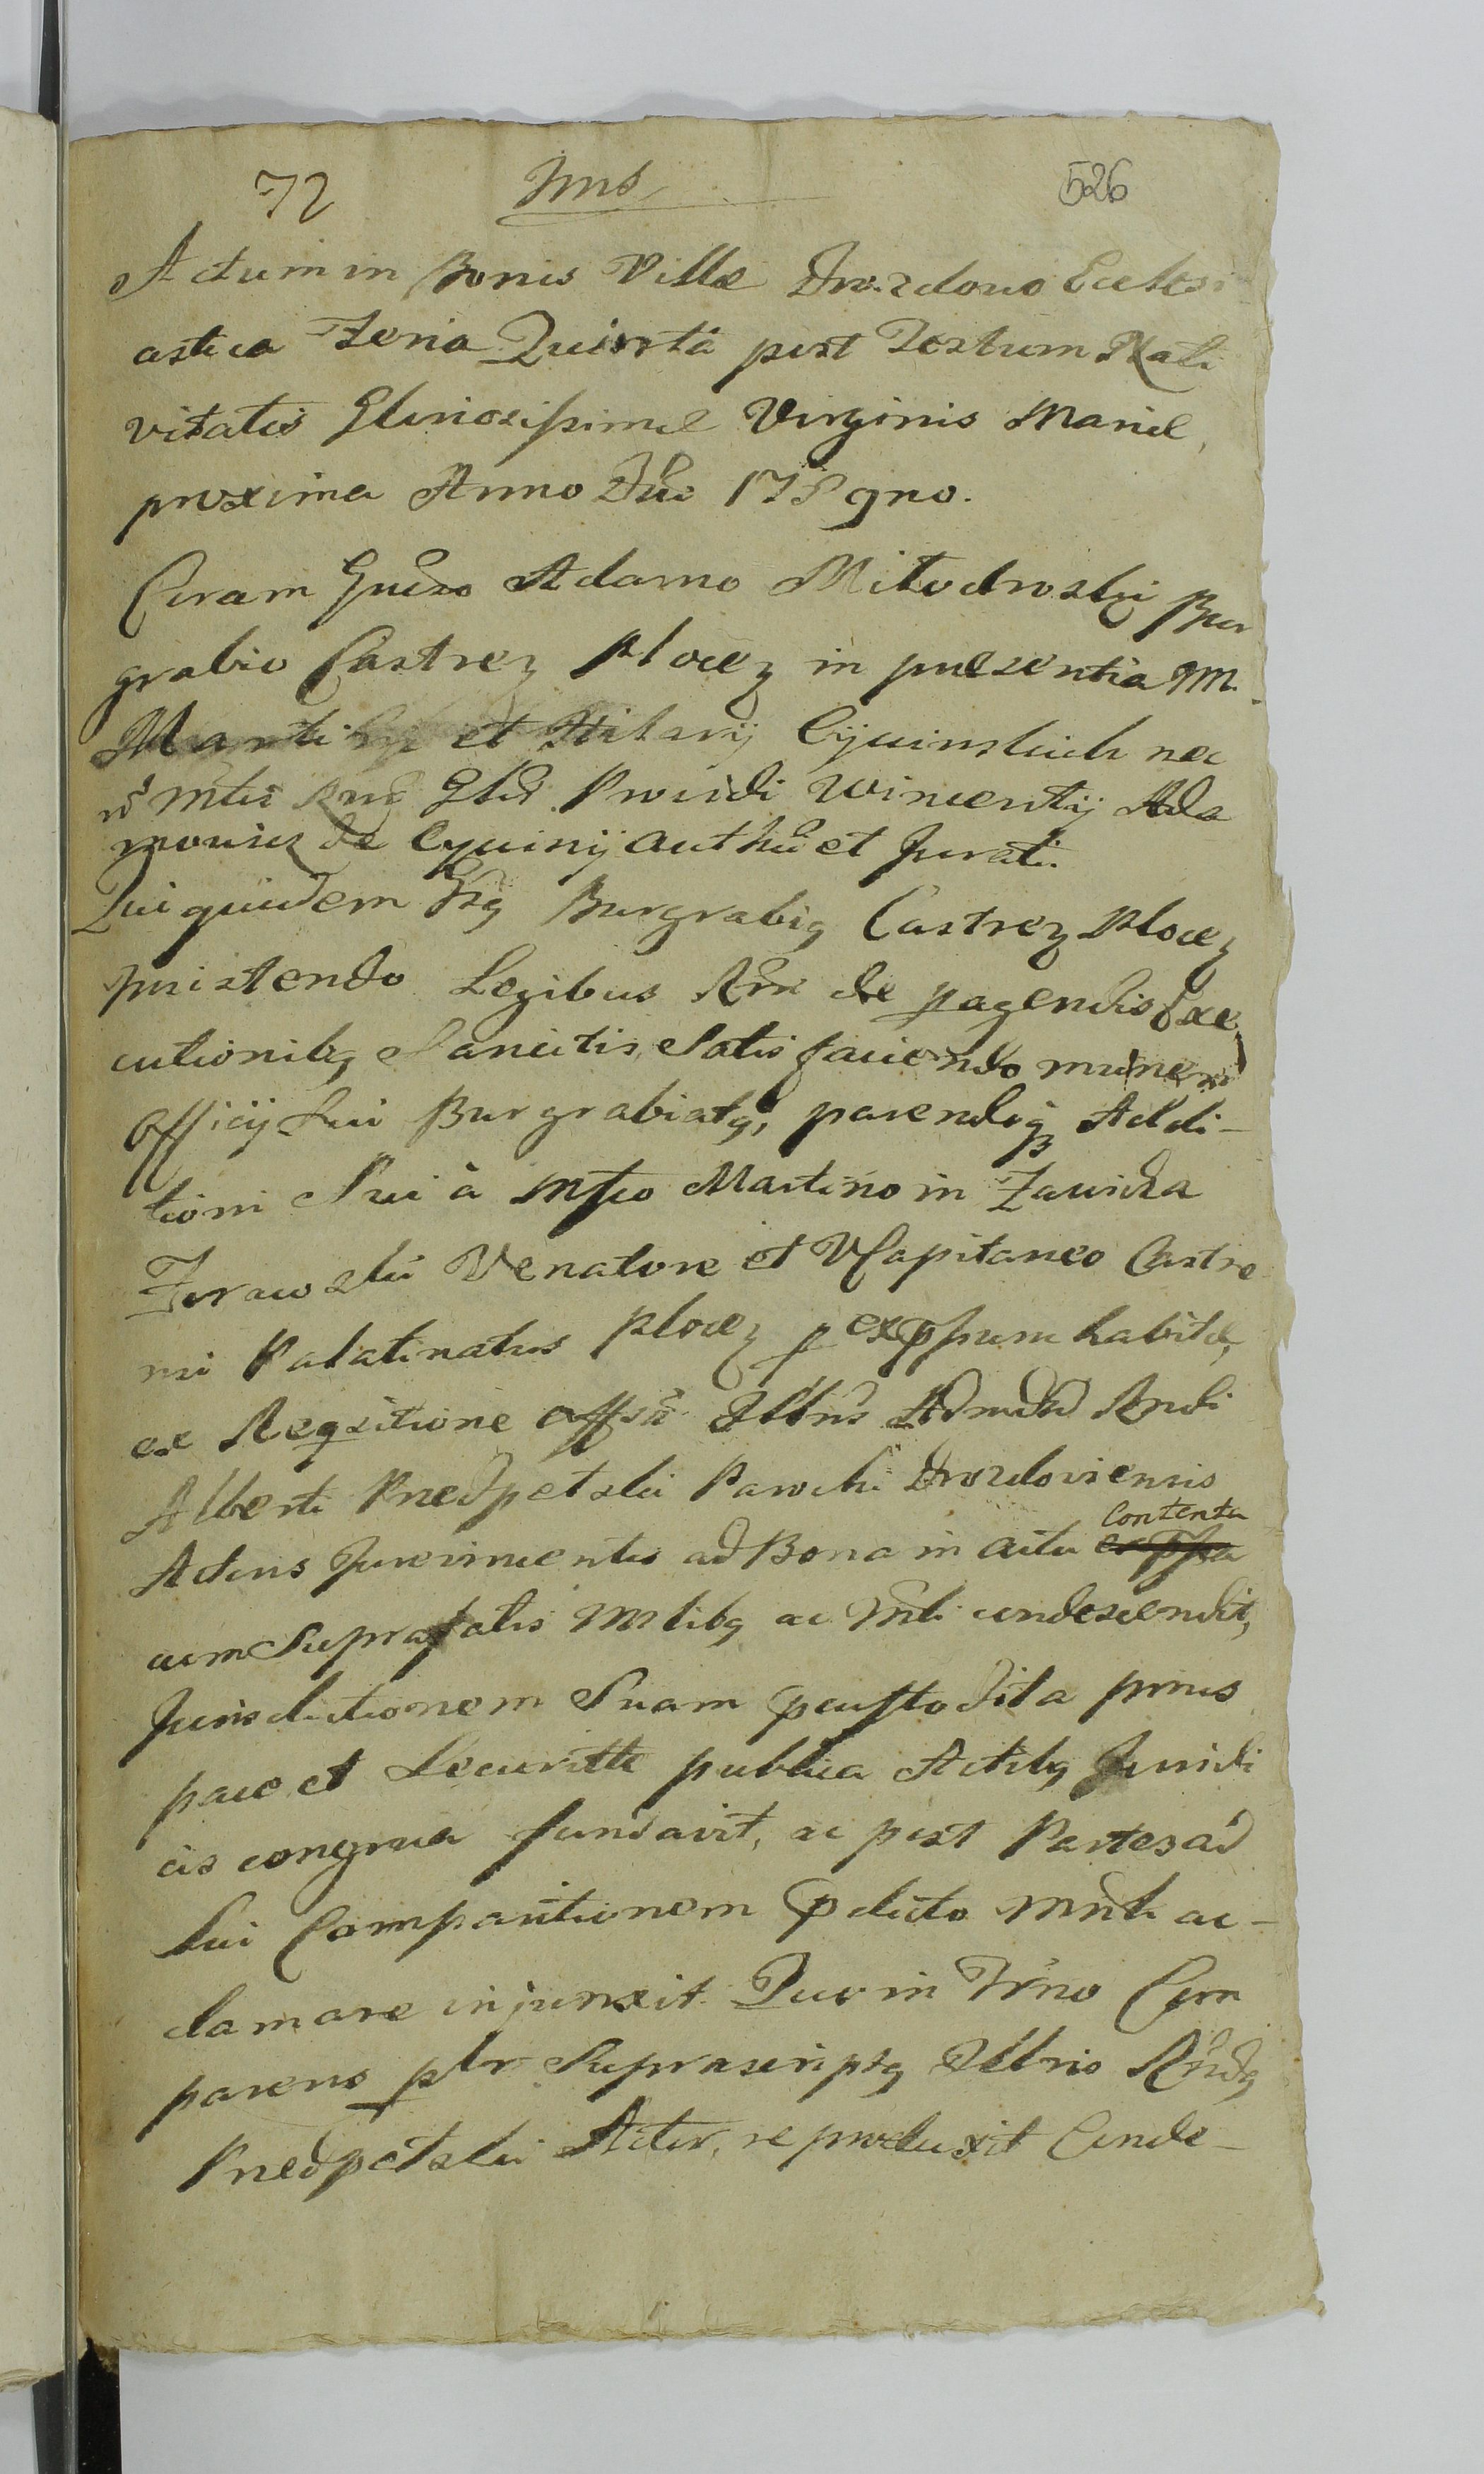 72 Jms 526
Actum in Bonis Villæ Drozdowo Eccłesi
astica Feria Quarta post Festum Nati
vitatis Gloriosissimæ Virginis Mariæ
proxima Anno Dni 17 gno.
Coram Gnrso Adamo Miłodroski Bur
grabio Castreŋ Ploceŋ in præsentia M.
Martini et Hilarij Cywinskich nec
n Mtis Rnŋ Gtŋ Providi Wincentij Ada
mowicz de Cywiny authŋ et Jurati.
Qui quidem Gŋg Burgrabiq Castreŋ Ploceŋ
insistendo Legibus Rŋ de pagendis Exe
cutionibq Sancitis, Satis faciendo muneri
Officij Sui Burgrabiatq, parendoq Addi-
tioni Sui à Mfco Martino in Zawida
Zurawski Venatore et VCapitaneo Castre
ni Palatinatus Plocen p expssum habitæ,
ex Reqsitione affŋ Illris Admdŋ Rndi
Alberti Przedpetski Parochi Drozdoviensis
Actus Jnrevinientis ad Bona in actu Contenta
cum Supra fatis Mtibq ac Mrli condescendit,
Jurisdictionem Suam pcustodita prius
pace et Securitte publica Actibq Juridi
cis congrua fundavit, ac post Partes ad
Sui Comparitionem p dicto Mnrli ac-
clamare injunxit. Quo in Trŋo Com
parens pbr Suprascriptq Illris Rndq
Przedpetski Actor, reproduxit Conde-